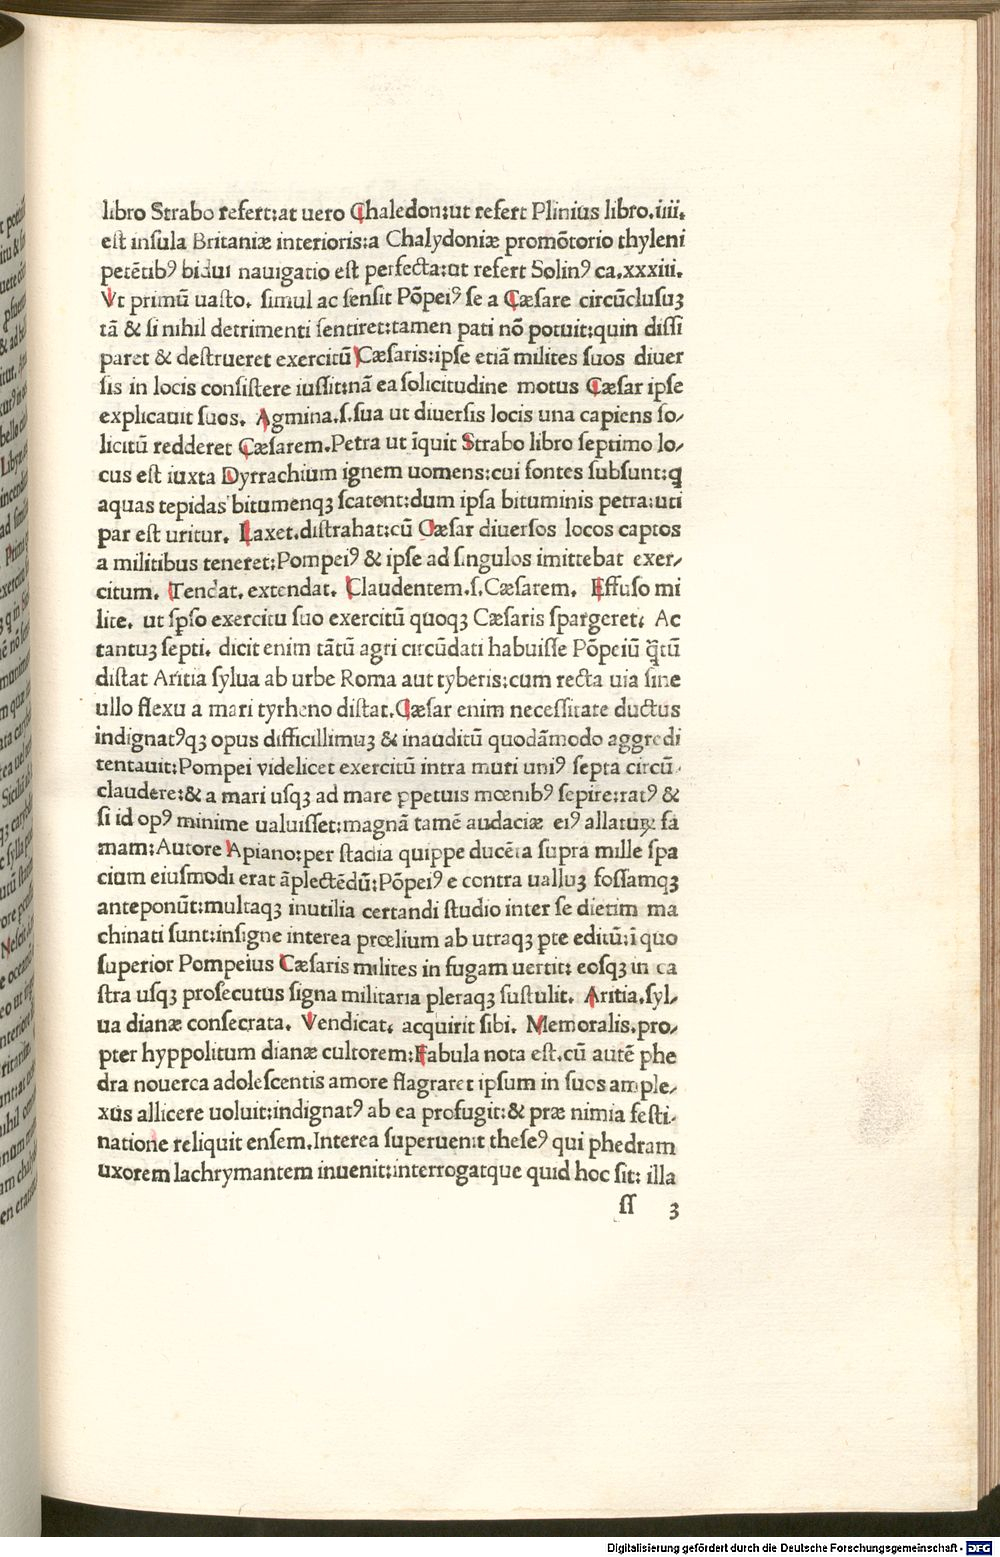 libro Strabo refert:at uero Chaledon:ut refert Plinius libro.iiii.
est insula Britaniæ interioris:a Chalydoniæ promõtorio thyleni
petẽtibꝰ bidui nauigatio est perfecta:ut refert Solinꝰ ca.xxxiii.
Vt primũ uasto. simul ac sensit Põpeiꝰ se a Cæsare circũclusuꝫ
tã & si nihil detrimenti sentiret:tamen pati nõ potuit:quin dissi
paret & destrueret exercitũ Cæsaris:ipse etiã milites suos diuer
sis in locis consistere iussit:nã ea solicitudine motus Cæsar ipse
explicauit suos. Agmina.s.sua ut diuersis locis una capiens so/
licitũ redderet Cæsarem.Petra ut ĩquit Strabo libro septimo lo/
cus est iuxta Dyrrachium ignem uomens:cui fontes subsunt:q
aquas tepidas bitumenqꝫ scatent:dum ipsa bituminis petra:uti
par est uritur. Laxet.distrahat:cũ Cæsar diuersos locos captos
a militibus teneret:Pompeiꝰ & ipse ad singulos imittebat exer/
citum. Tendat. extendat. Claudentem.s.Cæsarem. Effuso mi
lite. ut spso exercitu suo exercitũ quoqꝫ Cæsaris spargeret. Ac
tantuꝫ septi. dicit enim tãtũ agri circũdati habuisse Põpeiũ q̃tũ
distat Aritia sylua ab urbe Roma aut tyberis:cum recta uia sine
ullo flexu a mari tyrheno distat.Cæsar enim necessitate ductus
indignatꝰqꝫ opus difficillimuꝫ & inauditũ quodãmodo aggredi
tentauit:Pompei videlicet exercitũ intra muri uniꝰ septa circũ
claudere:& a mari usqꝫ ad mare ꝑpetuis mœnibꝰ sepire:ratꝰ &
si id opꝰ minime ualuisset:magnã tamẽ audaciæ eiꝰ allaturꝝ fa
mam:Autore Apiano:per stadia quippe ducẽta supra mille spa
cium eiusmodi erat ãplectẽdũ:Põpeiꝰ e contra ualluꝫ fossamqꝫ
anteponũt:multaqꝫ inutilia certandi studio inter se dietim ma
chinati sunt:insigne interea prœlium ab utraqꝫ ꝑte editũ:ĩ quo
superior Pompeius Cæsaris milites in fugam uertit: eosqꝫ in ca
stra usqꝫ prosecutus signa militaria pleraqꝫ sustulit. Aritia.syl/
ua dianæ consecrata. Vendicat. acquirit sibi. Memoralis.pro/
pter hyppolitum dianæ cultorem:Fabula nota est.cũ autẽ phe
dra nouerca adolescentis amore flagraret ipsum in suos ample/
xus allicere uoluit:indignatꝰ ab ea profugit:& præ nimia festi
natione reliquit ensem.Interea superuenit theseꝰ qui phedram
uxorem lachrymantem inuenit:interrogatque quid hoc sit: illa
ss 3
Digitalisierung gefördert durch die Deutsche Forschungsgemeinschaft - DFG